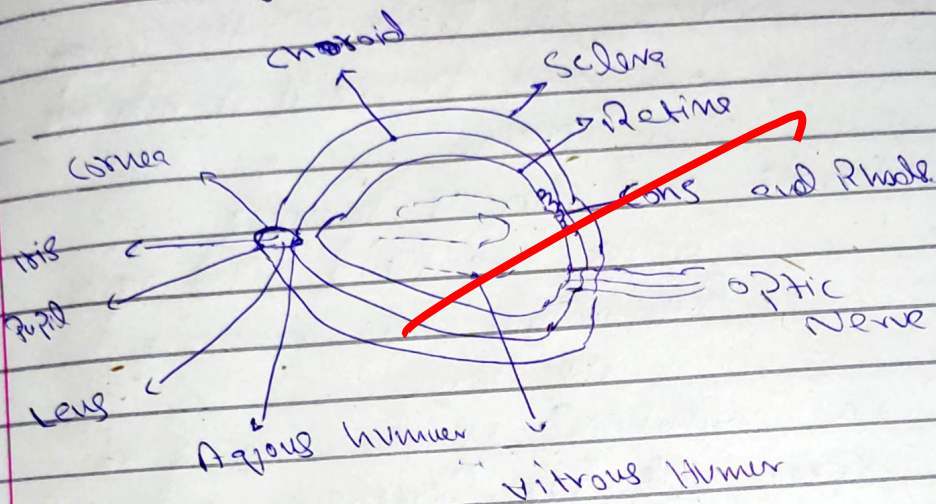 Choroid
Sclera
Retine
Cornea
Cons and Rhods.
Iris
Pupil
optic
Nerve
Lens
Aqious humuer
Vitrous Humer